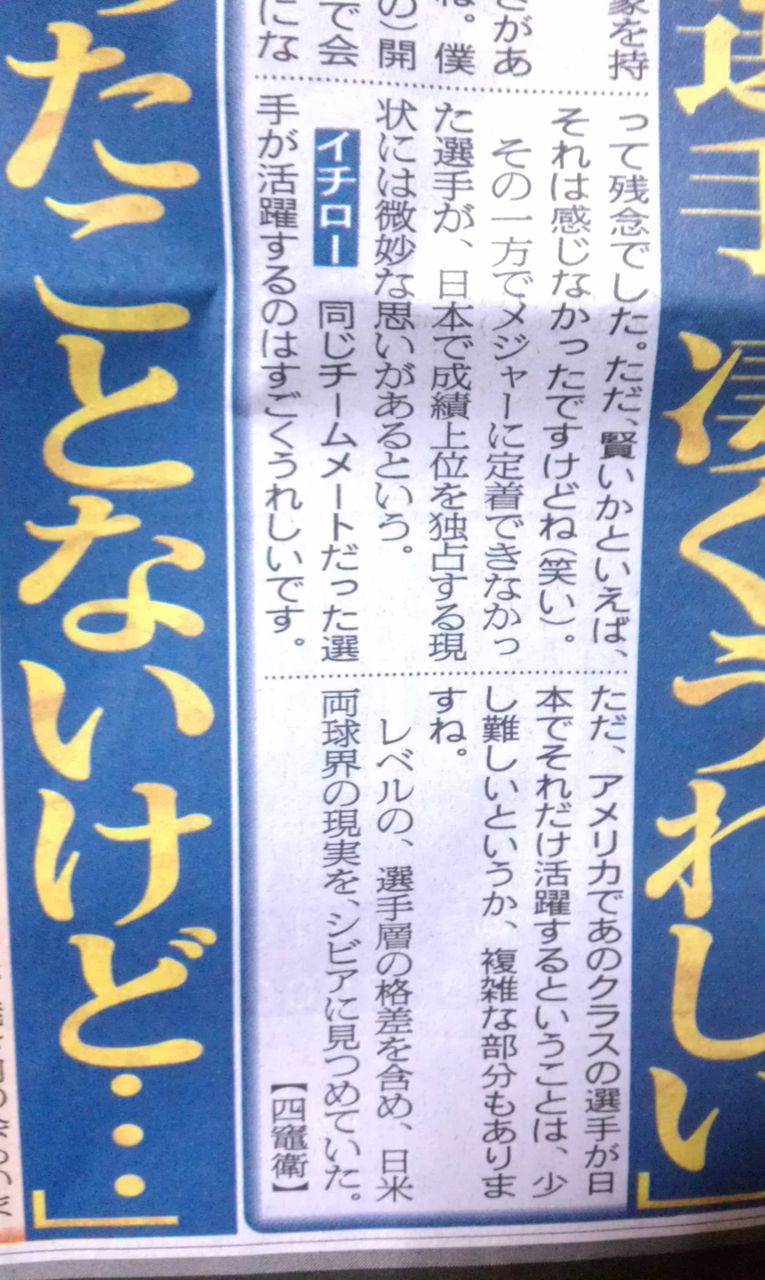 選手 凄くうれしい」
ったことないけど…」
象を持
きがあ
ね。僕
の）開
で会
にな
って残念でした。ただ、賢いかといえば、
それは感じなかったですけどね（笑い）。
その一方でメジャーに定着できなかっ
た選手が、日本で成績上位を独占する現
状には微妙な思いがあるという。
イチロー 同じチームメートだった選
手が活躍するのはすごくうれしいです。
ただ、アメリカであのクラスの選手が日
本でそれだけ活躍するということは、少
し難しいというか、複雑な部分もありま
すね。
レベルの、選手層の格差を含め、日米
両球界の現実を、シビアに見つめていた。
【四竈衛】